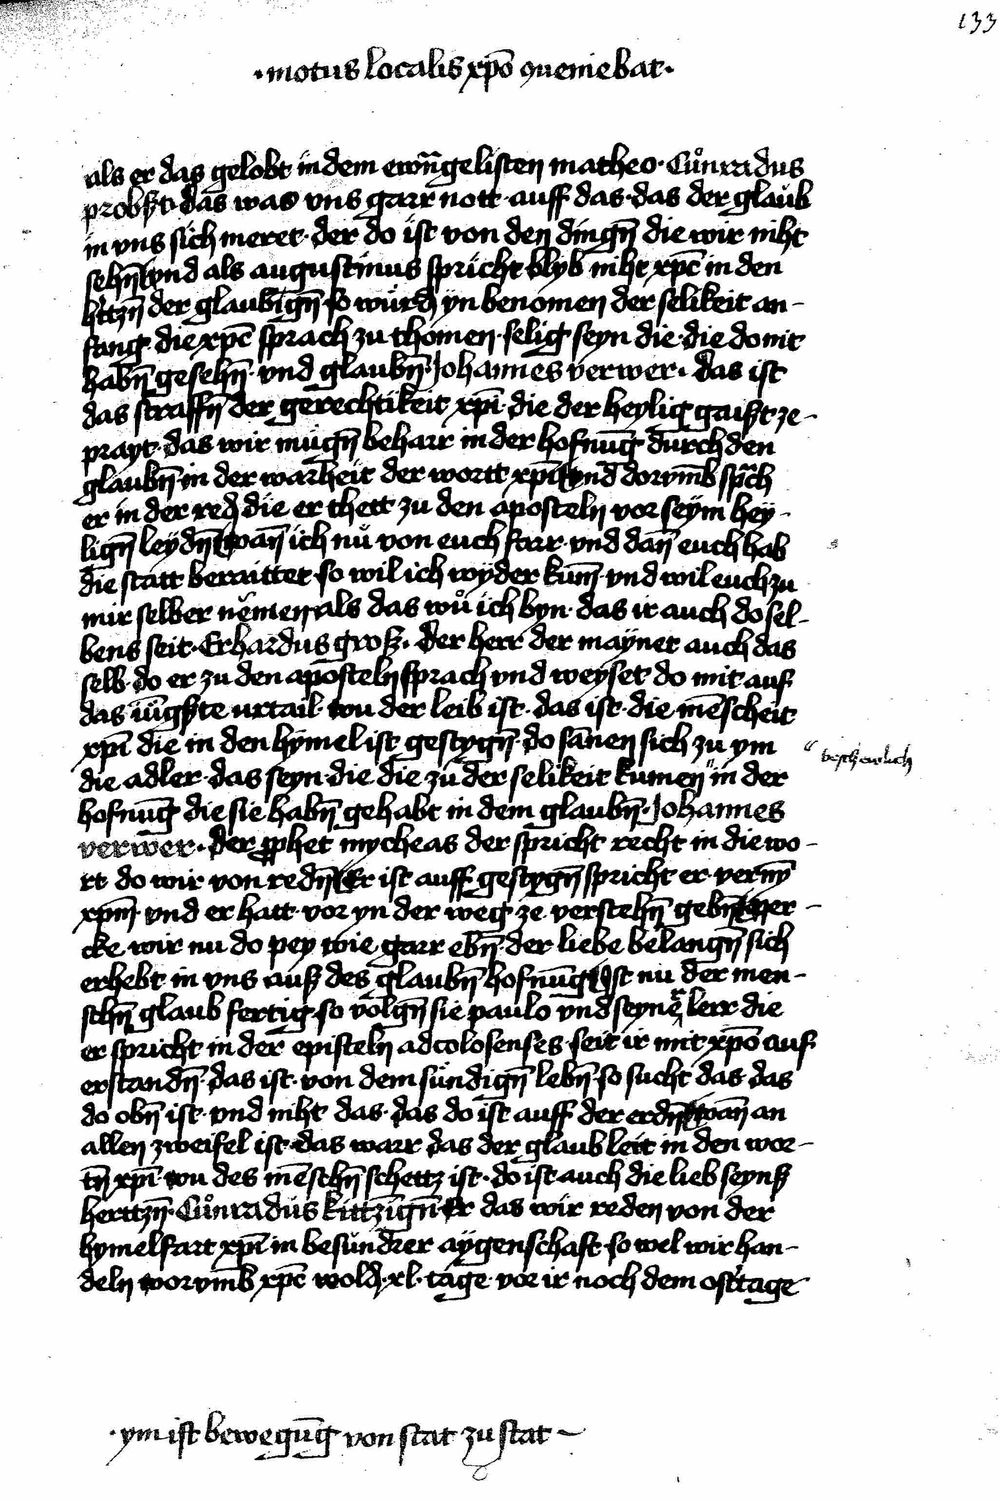 133
·motus localis xp̄o ꝯueniebat·
als er das gelobt in dem ewn̄gelisten matheo· Cůnradus
probst· das was vns garr nott auff das· das der glaub
in vns sich meret· der do ist von den dingn̄ die wir niht
sehn̄ vnd als augustinus spricht blyb niht xp̄c in den
h'tzn̄ der glaubign̄ so würd yn benomen der selikeit an-
fang· die xp̄c sprach zu thomen· selig seyn die· die do nit
habn̄ gesehn̄· vnd glaubn̄· Johannes verwer· das ist
das straffn̄ der gerechtikeit xp̄i· die der heylig gaist ze-
prayt· das wir mügn̄ beharr in der hofnūg durch den
glaubn̄· in der warheit der wortt xp̄i vnd dorvmb sp̄ch
er in der red die er thett zu den aposteln vor seym hey-
lign̄ leydn̄ wān ich nů von euch farr· vnd dān euch hab
die statt beraittet· so wil ich wyder kum̄· vnd wil euch zu
mir selber nemen als das wů ich byn· das ir auch do sel-
bens seit· Erhardus groß· der herr der maynet auch das
selb· do er zu den aposteln sprach vnd weyset do mit auf
das iūgste urtail· wu der leib ist· das ist· die mēscheit
xp̄i die in den hymel ist gestygn̄· do samen sich zu ym
die adler· das seyn· die die zu der selikeit kumen " in der
" beschewlich
hofnūg die sie habn̄ gehabt in dem glaubn̄· Johannes
verwer· der ꝓphet mycheas der spricht recht in die wo-
rt do wir von redn̄ Er ist auff gestygn̄ spricht er vernym̄
xpm̄· vnd er hatt vor yn der weg ze verstehn̄ gebn̄ Mer-
cke wir nu do pey wie garr ebn̄ der liebe belangn̄ sich
erhebt in vns auß des glaubn̄ hofnūg Ist nu der men-
schn̄ glaub fertig· so volgn̄ sie paulo vnd seyner lerr die
er spricht in der episteln ad colosenses· seit ir mit xp̄o auf
erstandn̄· das ist· von dem sündign̄ lebn̄· so sucht das· das
do obn̄ ist· vnd niht das· das do ist auff der erdn̄ wān an
allen zweifel ist· das warr das der glaub leit in den wor-
tn̄ xp̄i wu des mēschn̄ schettz ist· do ist auch die lieb seynß
herttzn̄· Cůnradus kittzīgn̄ Er das wir reden von der
hymelfart xp̄i in besundrer aygenschaft· so wel wir han-
deln worvmb xp̄c wold· xl· tage· vor ir noch dem ost'tage
·ym ist bewegūg von stat zu stat-